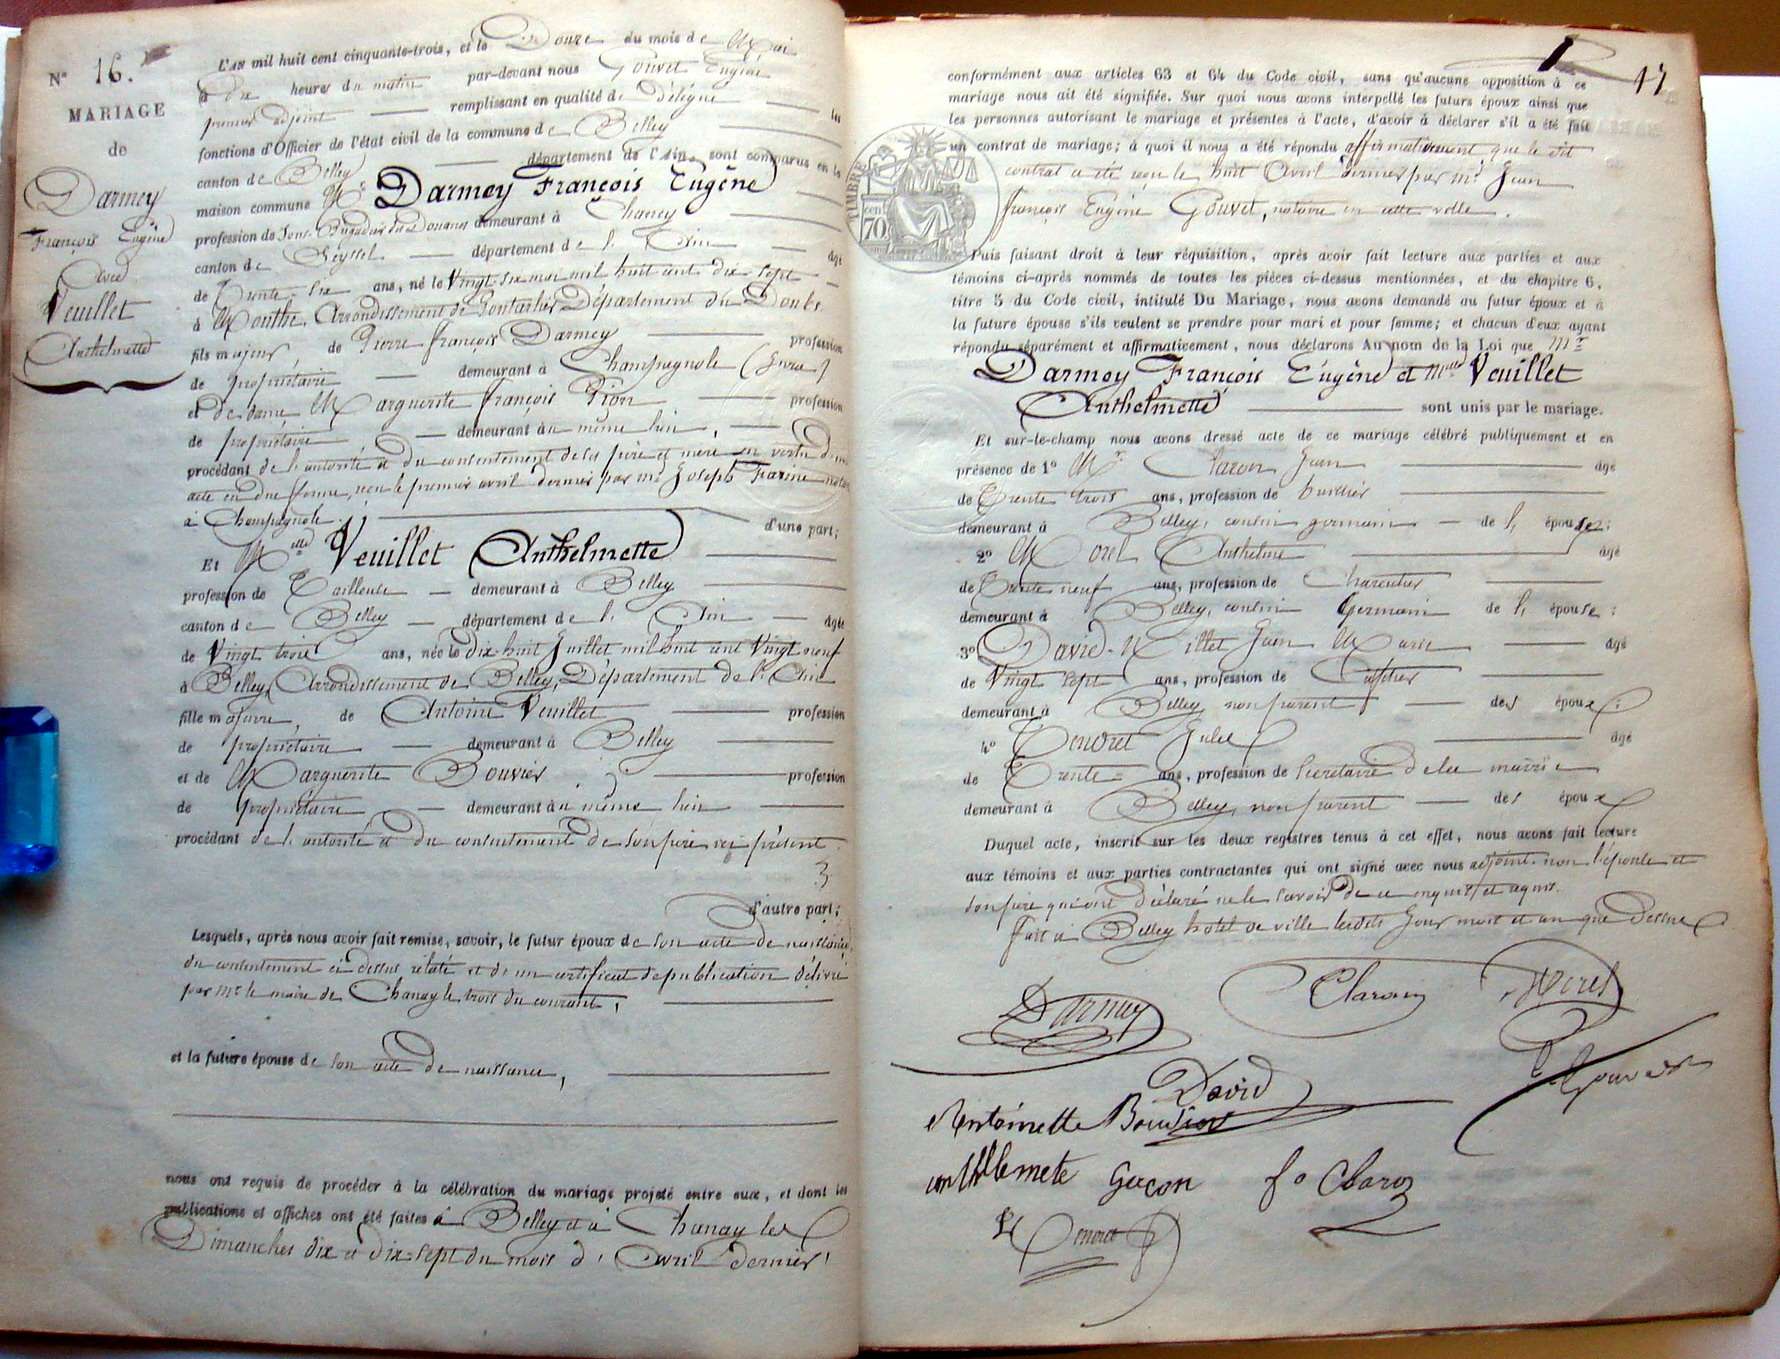 Nº 16.
MARIAGE
de
Darmey
François Eugène
Avec
Veuillet
Anthelmette
L'AN mil huit cent cinquante-trois, et le Douze du mois de Mai
à dix heures du matin par-devant nous Gouvet Eugène
premier adjoint remplissant en qualité de Délégué les
fonctions d'Officier de l'état civil de la commune de Belley
canton de Belley département de l'Ain, sont comparus en la
maison commune Mr Darmey François Eugène
profession de Sous-Brigadier des Douanes demeurant à Chanay
canton de Seyssel département de l'Ain âgé
de Trente-six ans, né le Vingt-six mai mil huit cent dix-sept
à Mouthe, Arrondissement de Pontarlier Département du Doubs
fils majeur, de Pierre François Darmey profession
de propriétaire demeurant à Champagnole (Jura)
et de dame Marguerite François Pion profession
de propriétaire demeurant au même lieu,
procédant de l'autorité et du consentement de ses père et mère en vertu d'un
acte en due forme, reçu le premier avril dernier par me Joseph Farine notaire
à Champagnole. d'une part;
Et Melle Veuillet Anthelmette
profession de Tailleuse demeurant à Belley
canton de Belley département de l'Ain âgée
de Vingt trois ans, née le dix-huit Juillet mil huit cent Vingt neuf
à Belley, Arrondissement de Belley, Département de l'Ain
fille majeure, de Antoine Veuillet profession
de propriétaire demeurant à Belley
et de Marguerite Bouvier profession
de propriétaire demeurant au même lieu
procédant de l'autorité et du consentement de son père ici présent
d'autre part;
Lesquels, après nous avoir fait remise, savoir, le futur époux de son acte de naissance,
du consentement ci dessus relaté et de un certificat de publication délivré
par mr le maire de Chanay le trois du courant,
et la future épouse de son acte de naissance,
nous ont requis de procéder à la célébration du mariage projeté entre eux, et dont les
publications et affiches ont été faites à Belley et à Chanay les
Dimanches dix et dix-sept du mois d'Avril dernier
17
conformément aux articles 63 et 64 du Code civil, sans qu'aucune opposition à ce
mariage nous ait été signifiée. Sur quoi nous avons interpellé les futurs époux ainsi que
les personnes autorisant le mariage et présentes à l'acte, d'avoir à déclarer s'il a été fait
un contrat de mariage; à quoi il nous a été répondu affirmativement que le dit
contrat a été reçu le huit Avril dernier par me Jean
François Eugène Gouvet, notaire en cette ville.
TIMBRE
70 cent
Puis faisant droit à leur réquisition, après avoir fait lecture aux parties et aux
témoins ci-après nommés de toutes les pièces ci-dessus mentionnées, et du chapitre 6,
titre 5 du Code civil, intitulé Du Mariage, nous avons demandé au futur époux et à
la future épouse s'ils veulent se prendre pour mari et pour femme; et chacun d'eux ayant
répondu séparément et affirmativement, nous déclarons Au nom de la Loi que Mr
Darmey François Eugène et Melle Veuillet
Anthelmette sont unis par le mariage.
Et sur-le-champ nous avons dressé acte de ce mariage célébré publiquement et en
présence de 1º Mr Claron Jean âgé
de Trente trois ans, profession de huissier
demeurant à Belley, cousin germain de l'épouse;
2º Morel Anthelme âgé
de Trente neuf ans, profession de Charcutier
demeurant à Belley, cousin Germain de l'épouse;
3º David-Millet Jean Marie âgé
de Vingt sept ans, profession de
demeurant à Belley, non parent des époux;
4º Jules âgé
de Trente ans, profession de secrétaire de la mairie
demeurant à Belley, non parent des époux
Duquel acte, inscrit sur les deux registres tenus à cet effet, nous avons fait lecture
aux témoins et aux parties contractantes qui ont signé avec nous adjoint, non l'épouse et
son père qui ont déclaré ne le savoir de ce enquis et requis.
Fait à Belley hotel de ville lesdits Jour mois et an que dessus
Darmey Claron Morel
David Gouvet
Antoinette Bouvier
anthelmete Gucon fo Claron